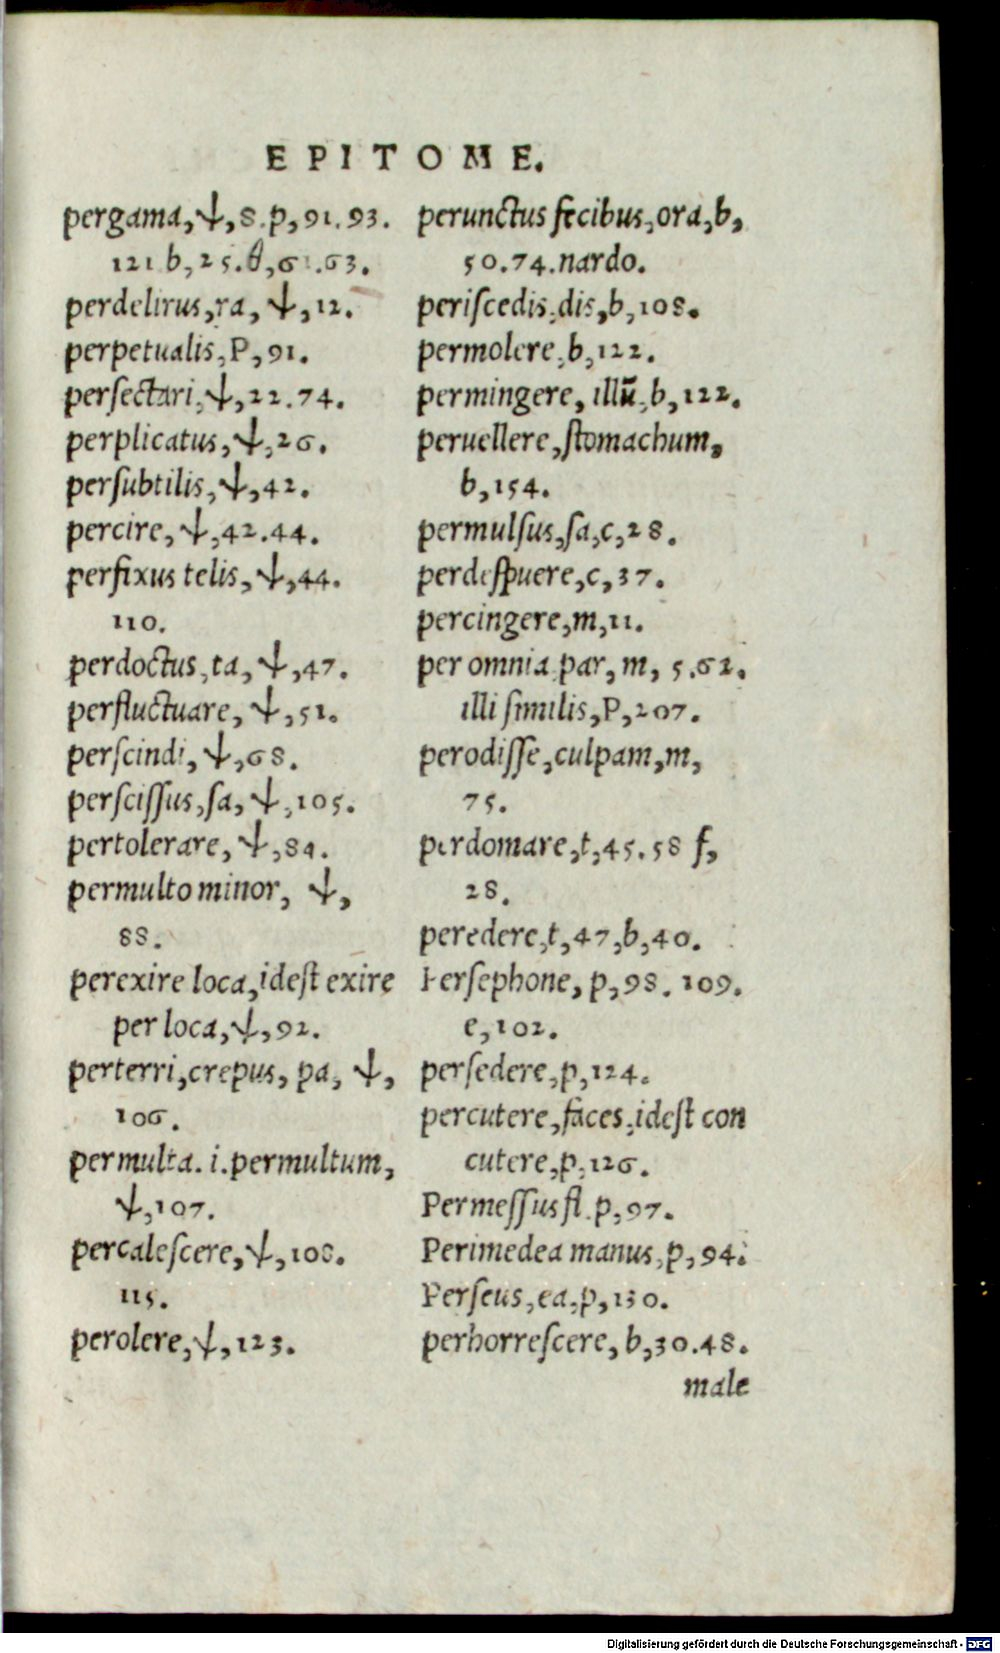 EPITOME.
pergama,ψ,8.p,91.93.
121 b,25.θ,61.63.
perdelirus,ra, ψ,12.
perpetualis,P,91.
perſectari,ψ,22.74.
perplicatus,ψ,26.
perſubtilis,ψ,42.
percire,ψ,42.44.
perfixus telis,ψ,44.
110.
perdoctus,ta,ψ,47.
perfluctuare, ψ,51.
perſcindi,ψ,68.
perſciſſus,ſa,ψ,105.
pertolerare,ψ,84.
permulto minor, ψ,
88.
perexire loca,idest exire
per loca,ψ,92.
perterri,crepus, pa, ψ,
106.
permulta. i.permultum,
ψ,107.
percaleſcere,ψ,108.
115.
perolere,ψ,123.
perunctus fecibus,ora,b,
50.74.nardo.
periſcedis,dis,b,108.
permolere,b,122.
permingere, illū,b,122.
peruellere,ſtomachum,
b,154.
permulſus,ſa,c,28.
perdeſpuere,c,37.
percingere,m,11.
per omnia par,m, 5.62.
illi ſimilis,P,207.
perodiſſe,culpam,m,
75.
perdomare,t,45.58 f,
28.
peredere,t,47,b,40.
Perſephone, p,98. 109.
e,102.
perſedere,p,124.
percutere,faces,idest con
cutere,p,126.
Permeſſus fl.p,97.
Perimedea manus,p,94.
Perſeus,ea,p,130.
perhorreſcere, b,30.48.
male
Digitalisierung gefördert durch die Deutsche Forschungsgemeinschaft - DFG